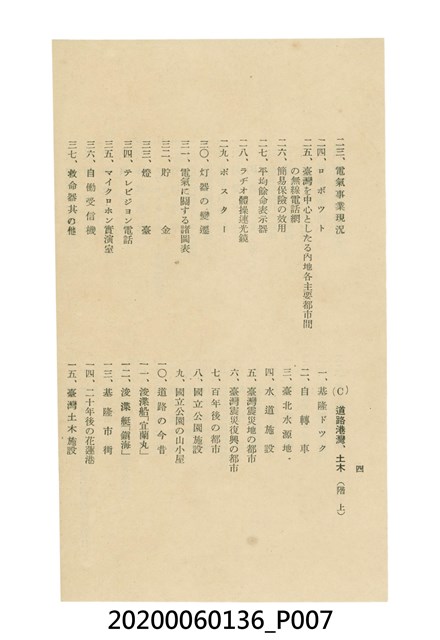 二三、電氣事業現況
二四、ロボツト
二五、臺灣を中心としたる內地各主要都市間
の無線電話網
二六、簡易保險の效用
二七、平均餘命表示器
二八、ラヂオ體操速光鏡
二九、ポスター
三〇、灯器の變遷
三一、電氣に關する諸圖表
三二、貯金
三三、燈臺
三四、テレビジョン電話
三五、マイクロホン實演室
三六、自働受信機
三七、救命器其の他
四
(C) 道路港灣、土木(階上)
一、基隆ドツク
二、自轉車
三、臺北水源地
四、水道施設
五、臺灣震災地の都市
六、臺灣震災復興の都市
七、百年後の都市
八、國立公園施設
九、國立公園の山小屋
一〇、道路の今昔
一一、浚渫船「宜蘭丸」
一二、浚渫艇「鎭海」
一三、基隆市街
一四、二十年後の花蓮港
一五、臺灣土木施設
20200060136_P007